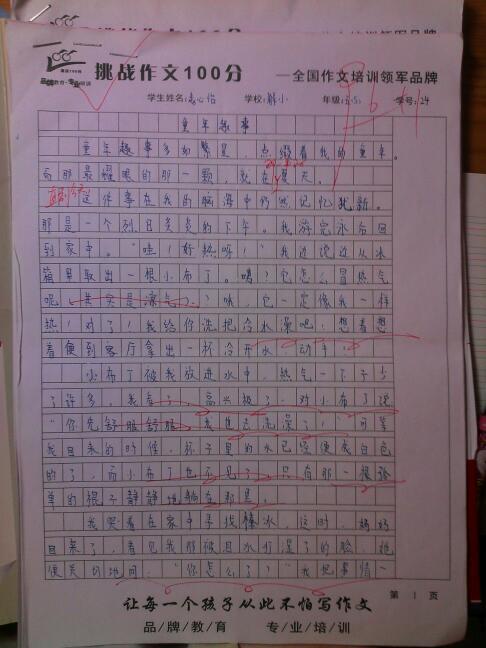 挑战作文100分 —全国作文培训领军品牌
学生姓名: 心怡 学校: 解小 年级: 五.5) 学号: 24
童年趣事
童年趣事多如繁星，点缀着我的童年。
而那最耀眼的那一颗，就在夏天。
这件事在我的脑海中仍然记忆犹新。
那是一个烈日炎炎的下午。我游完泳后回
到家中。“哇！好热呀！”我边说边从冰
箱里取出一根小布丁。噫？它怎么冒热气
呢（其实是凉气）？哦，它一定像我一样
热！对了！我给你洗把冷水澡吧！想着想
着便到客厅拿出一杯冷开水，动手。
小布丁被我放进水中，热气一下子少
了许多，我 ，高兴极了，对小布丁说
“你先舒服舒服，我也去洗澡了！”可等
我回来的时候，杯子里的水已经便成白色
的了，而小布丁也不见了，只有那一根孤
单的棍子静静地躺在那里。
我哭着在家中寻找 冰，这时，妈妈
回来了，看见我那被泪水打湿了的脸，她
便关切地问：“你怎么了？”我把事情一
第 1 页
让每一个孩子从此不怕写作文
品/牌/教/育 专/业/培/训